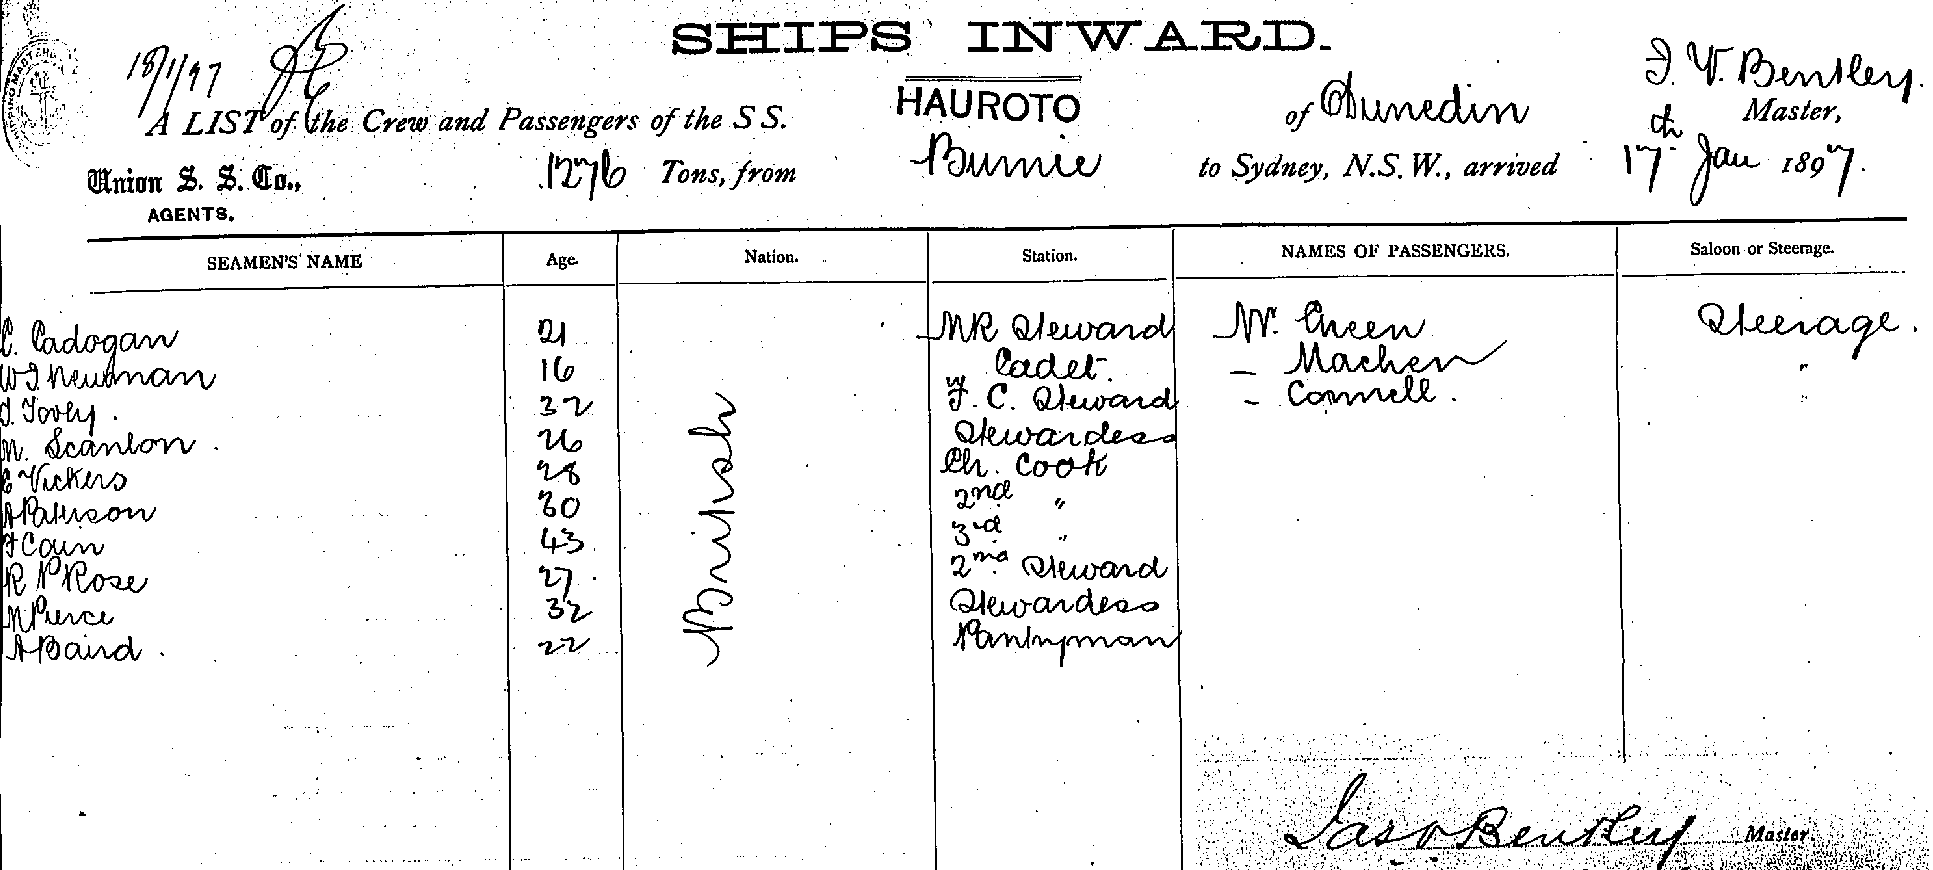 SHIPS INWARD.
18/1/97
J. V. Bentley.
A LIST of the Crew and Passengers of the S S. HAUROTO of Dunedin Master,
Union S. S. Co., 1276 Tons, from Burnie to Sydney, N.S.W., arrived 17th Jan 1897.
AGENTS.
SEAMEN'S NAME Age. Nation. Station. NAMES OF PASSENGERS. Saloon or Steerage.
C. Cadogan 21 MR Steward Mr. Green Steerage.
W J Newman 16 Cadet. - Machen "
J. Tovey. 32 F. C. Steward - Connell. "
M. Scanlon. 26 Stewardess
E Vickers 28 Ch. Cook
A Patterson 30 2nd "
J Cain 43 3rd "
R P Rose 27. 2nd Steward
M Pierce 32 Stewardess
A Baird. 22 Pantryman
British
Jas V Bentley Master